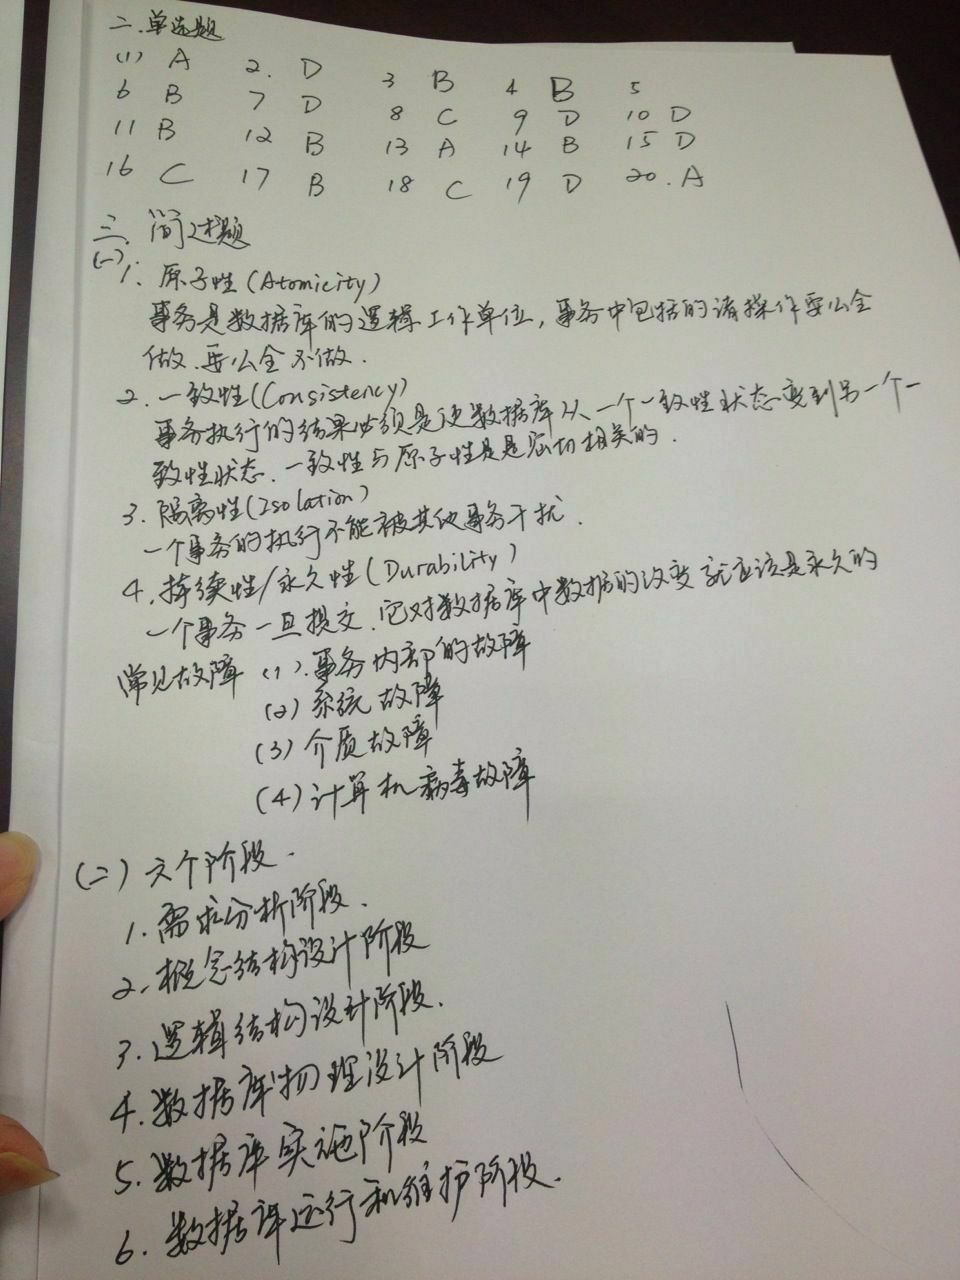 二.单选题
(1) A 2. D 3 B 4 B 5
6 B 7 D 8 C 9 D 10 D
11 B 12 B 13 A 14 B 15 D
16 C 17 B 18 C 19 D 20. A
三. 简述题
(一) 1. 原子性(Atomicity)
事务是数据库的逻辑工作单位,事务中包括的诸操作要么全
做.要么全不做.
2. 一致性(Consistency)
事务执行的结果必须是使数据库从一个一致性状态变到另一个一
致性状态.一致性与原子性是是密切相关的.
3. 隔离性(Isolation)
一个事务的执行不能被其他事务干扰.
4. 持续性/永久性(Durability)
一个事务一旦提交.它对数据库中数据的改变就应该是永久的
常见故障 (1).事务内部的故障
(2)系统故障
(3)介质故障
(4)计算机病毒故障
(二) 六个阶段.
1.需求分析阶段.
2.概念结构设计阶段
3.逻辑结构设计阶段.
4.数据库物理设计阶段
5.数据库实施阶段
6.数据库运行和维护阶段.